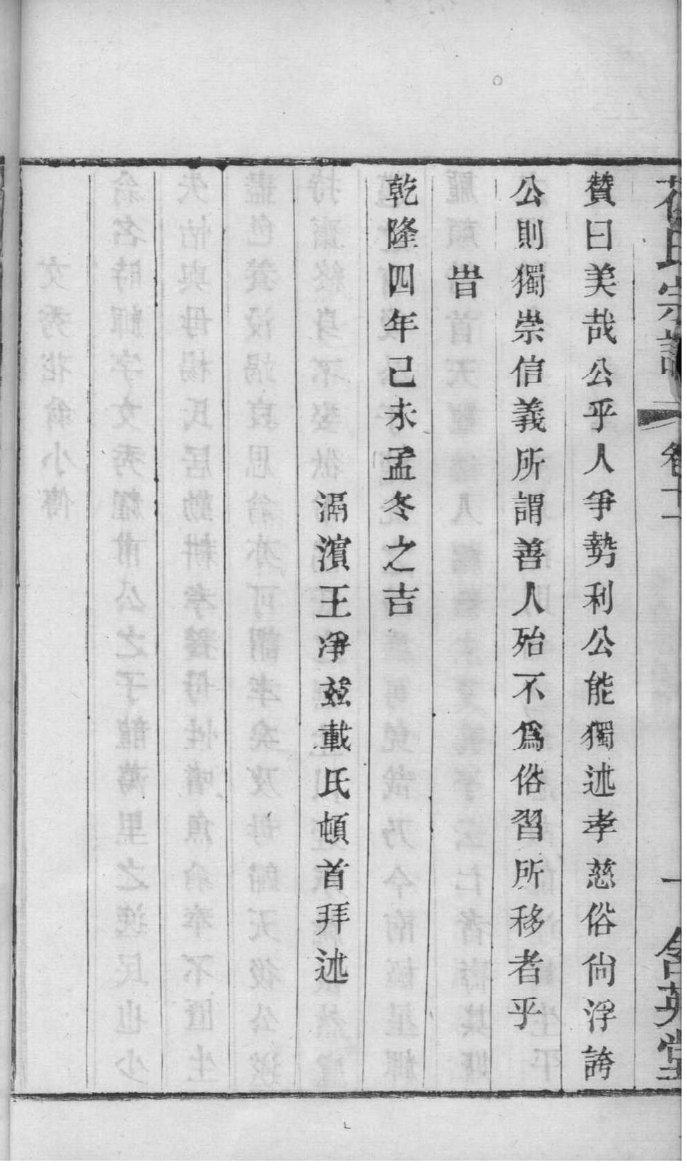 花氏宗譜 卷十一 一 含英堂
贊曰美哉公乎人爭勢利公能獨述孝慈俗尙浮誇
公則獨崇信義所謂善人殆不爲俗習所移者乎
旹
乾隆四年己未孟冬之吉
滆濱王凈兹載氏頓首拜述